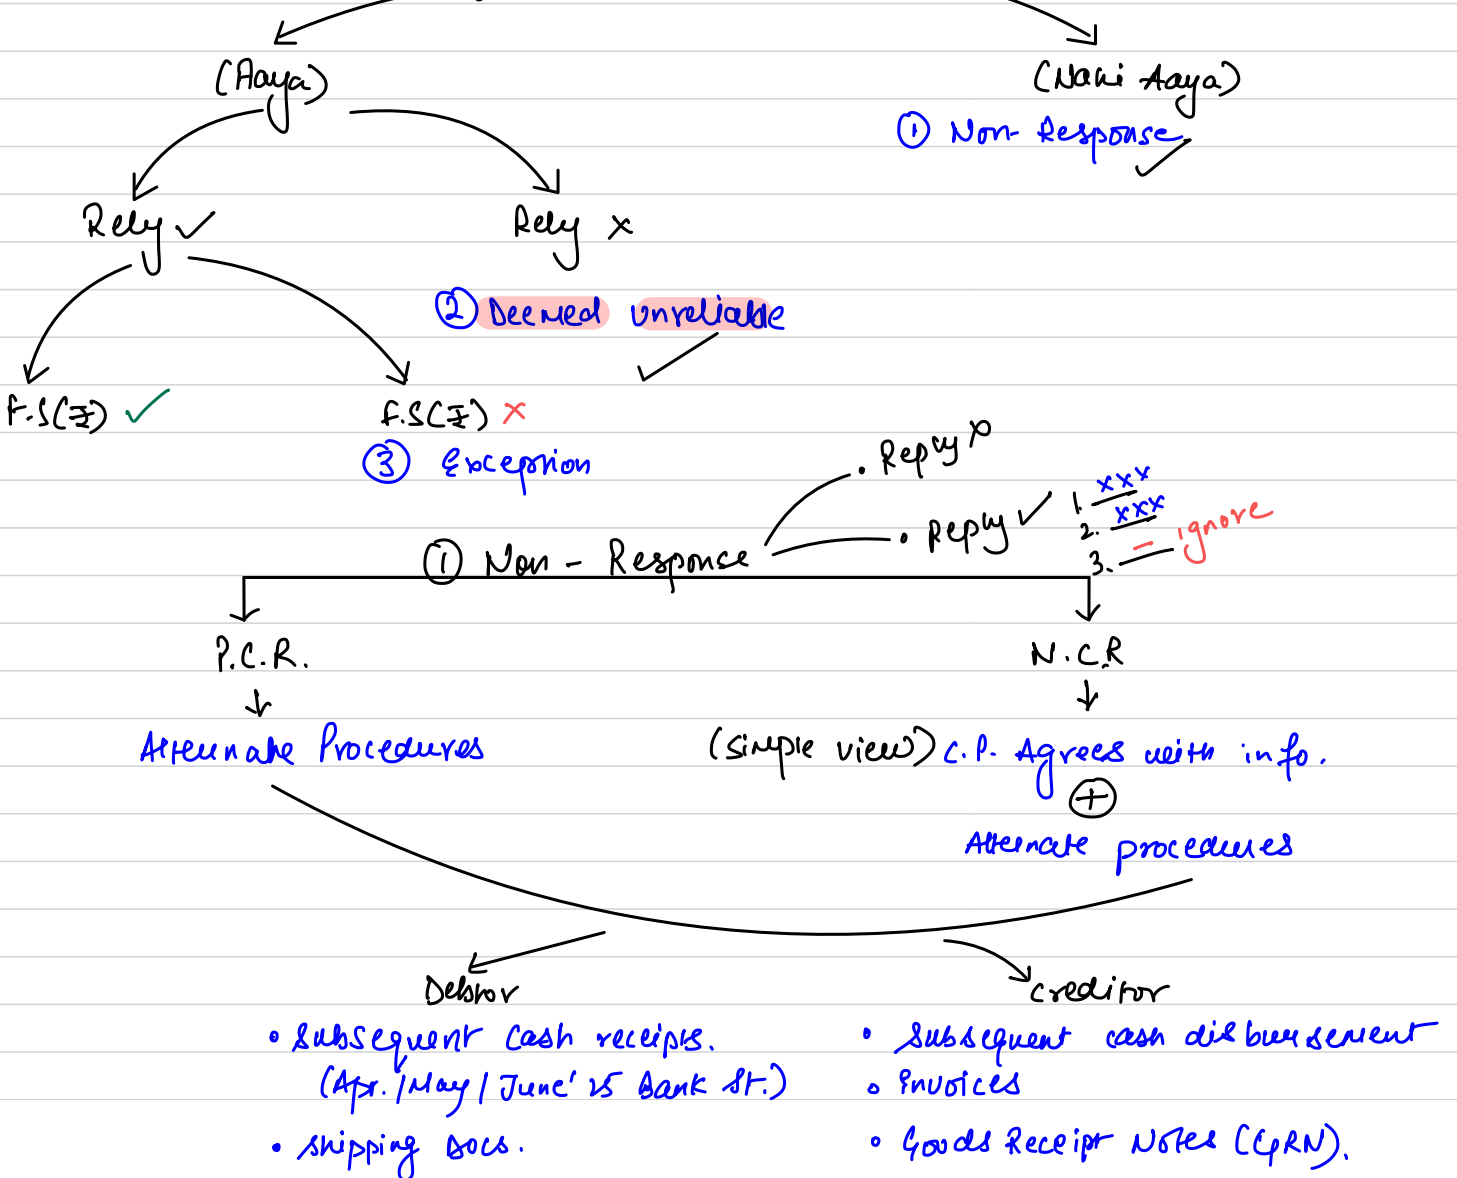 (Aaya) (Nahi Aaya)
① Non-Response
Rely ✓ Rely ×
② Deemed unreliable
F.S(₹) ✓ F.S(₹) ×
③ Exception
• Reply ×
• Reply ✓ 1. xxx
2. xxx
3. – ignore
① Non - Response
P.C.R. N.C.R
Alternate Procedures (simple view) C.P. Agrees with info.
+
Alternate procedures
Debtor Creditor
• Subsequent Cash receipts. • Subsequent cash disbursement
(Apr./May/June'25 Bank St.) • Invoices
• Shipping Docs. • Goods Receipt Notes (GRN).